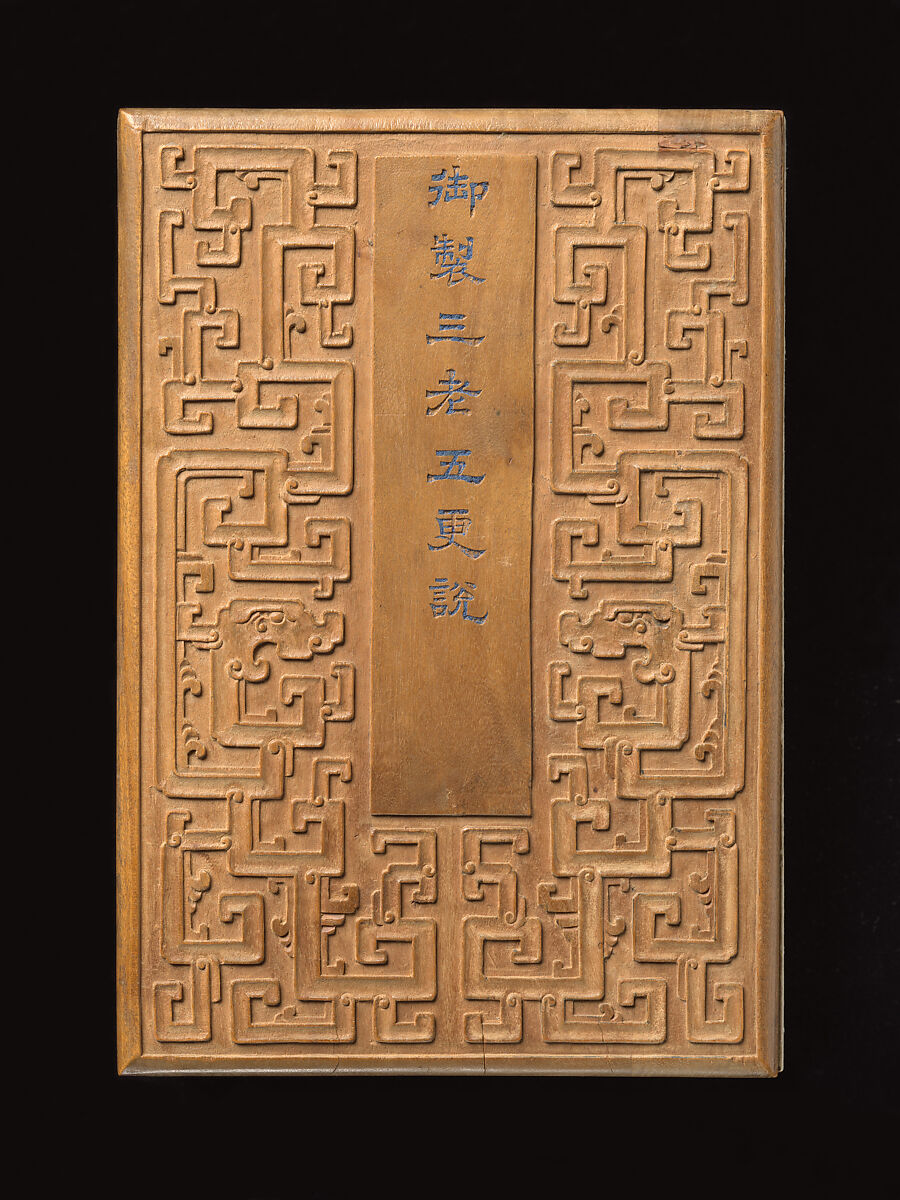 御製三老五更説